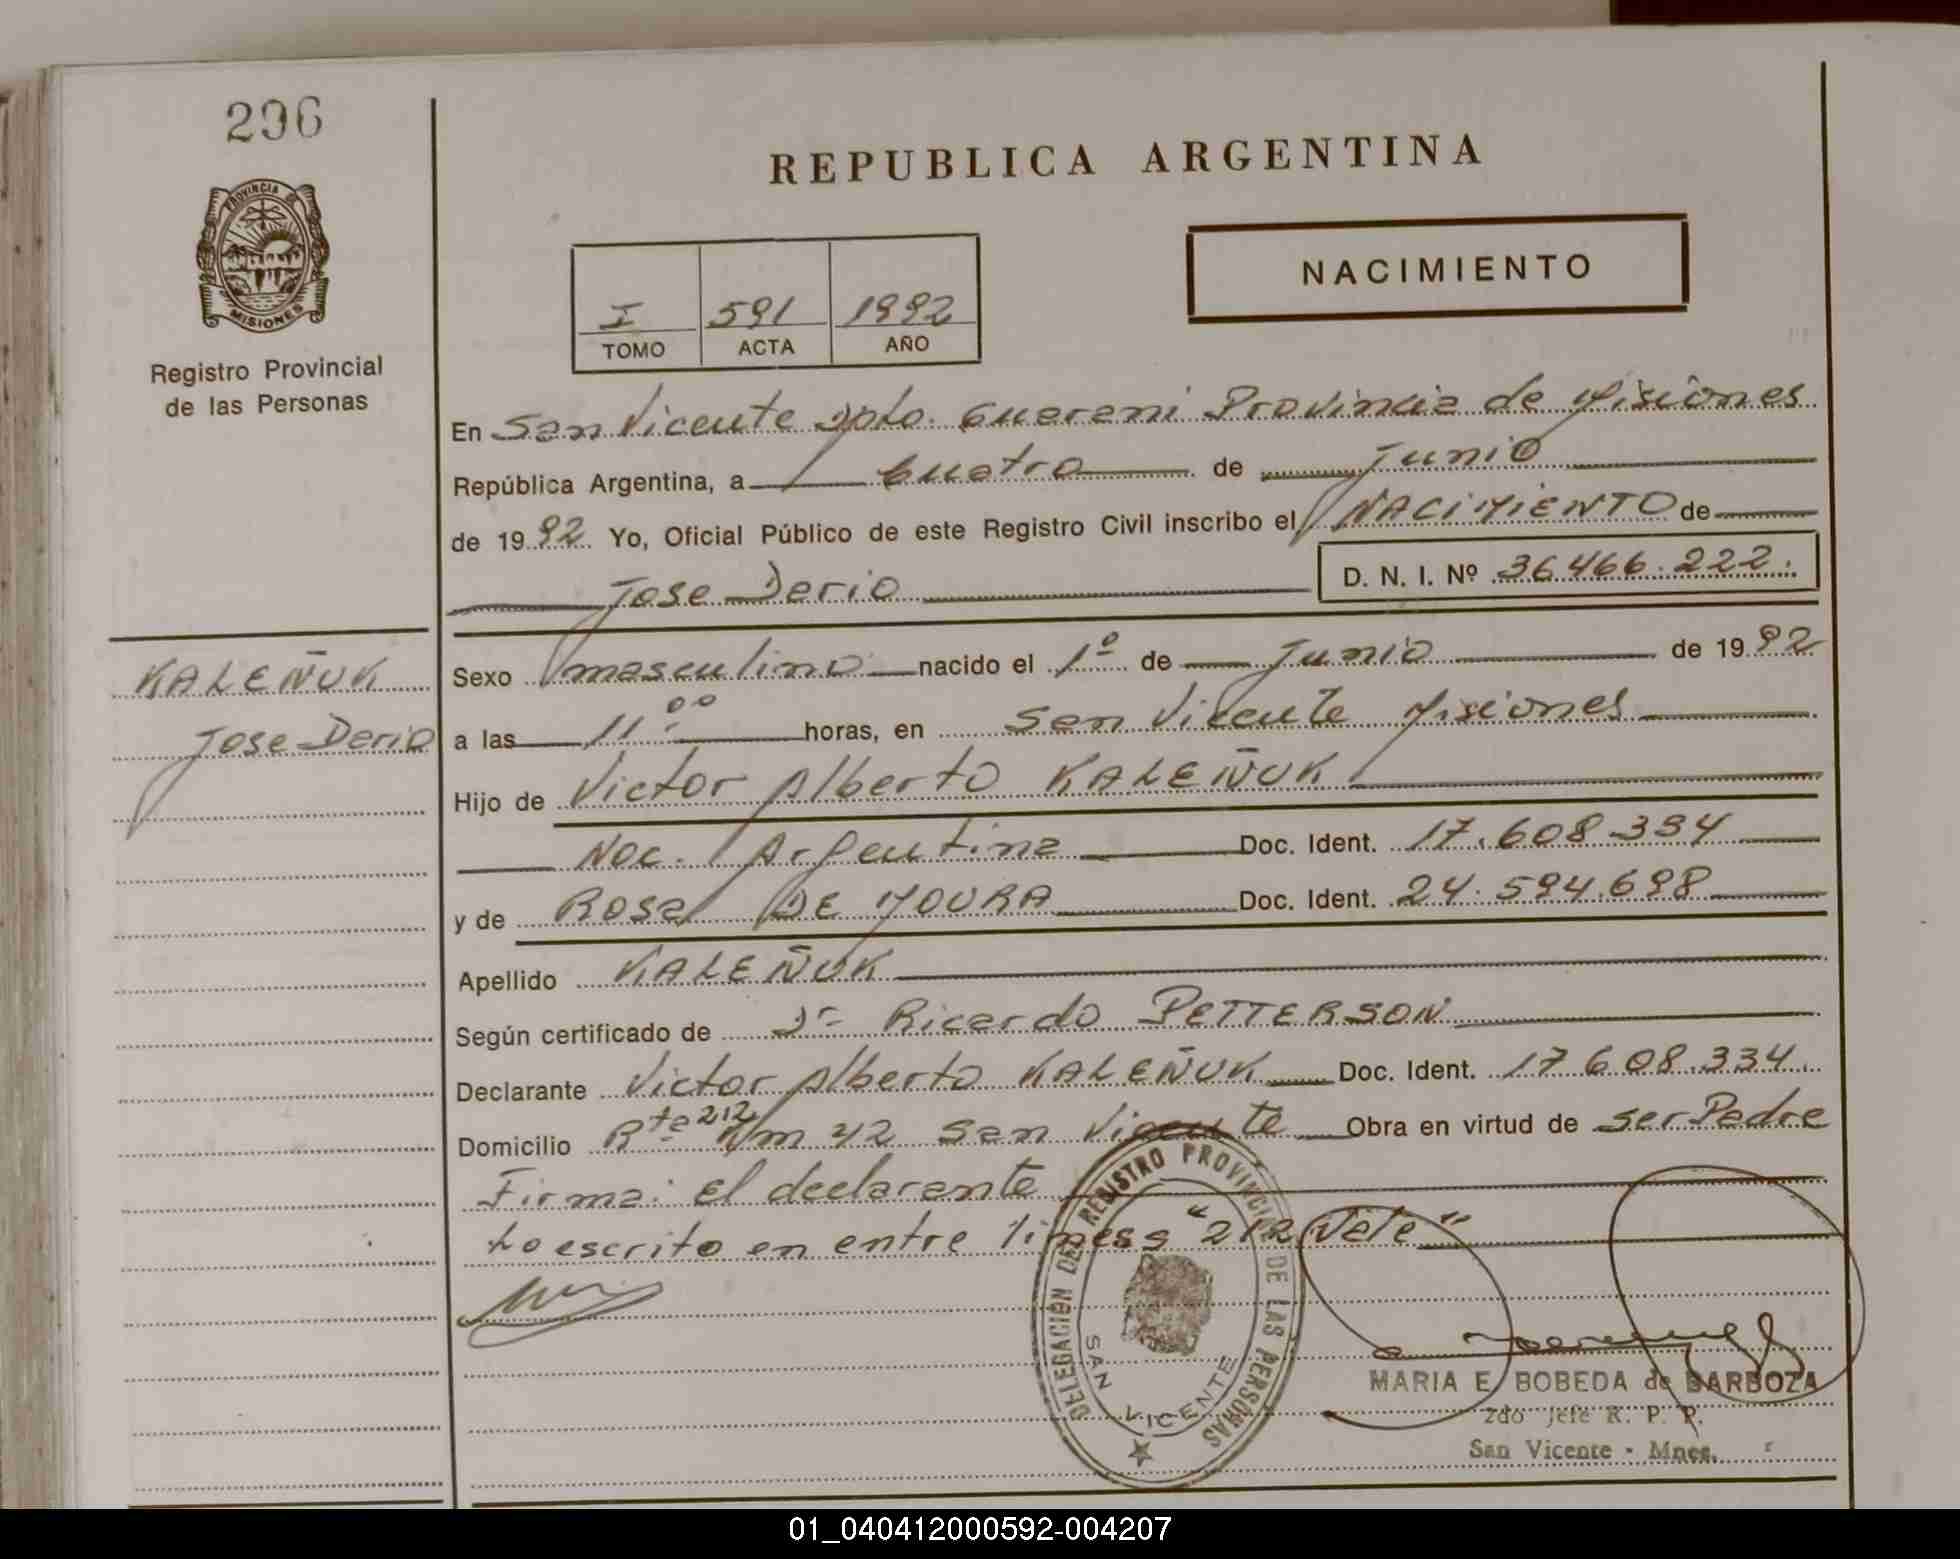 296
REPUBLICA ARGENTINA
PROVINCIA DE
MISIONES
Registro Provincial
de las Personas
NACIMIENTO
I 591 1992
TOMO ACTA AÑO
En San Vicente Dpto. Guarani Provincia de Misiones
República Argentina, a Cuatro de Junio
de 1992 Yo, Oficial Público de este Registro Civil inscribo el NACIMIENTO de
Jose Dario D. N. I. Nº 36.466.222.
KALEÑUK
Jose Dario
Sexo masculino nacido el 1º de Junio de 1992
a las 11:00 horas, en San Vicente Misiones
Hijo de Victor Alberto KALEÑUK
Nac. Argentina Doc. Ident. 17.608.334
y de Rosa DE MOURA Doc. Ident. 24.594.698
Apellido KALEÑUK
Según certificado de Dr Ricardo PETTERSON
Declarante Victor Alberto KALEÑUK Doc. Ident. 17.608.334.
Domicilio Rta 212 Km 42 San Vicente Obra en virtud de ser Padre
Firma: el declarante
Lo escrito en entre lineas "212 Vale"
DELEGACIÓN DEL REGISTRO PROVINCIAL DE LAS PERSONAS
SAN VICENTE
MARIA E. BOBEDA de BARBOZA
2do Jefe R. P. P.
San Vicente - Mnes.
01_040412000592-004207